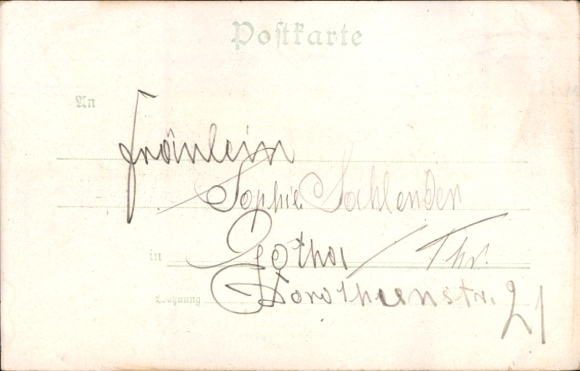 Postkarte
An
Fräulein
Sophie Sahlender
in Gotha / Thr.
Wohnung Dorotheenstr. 21